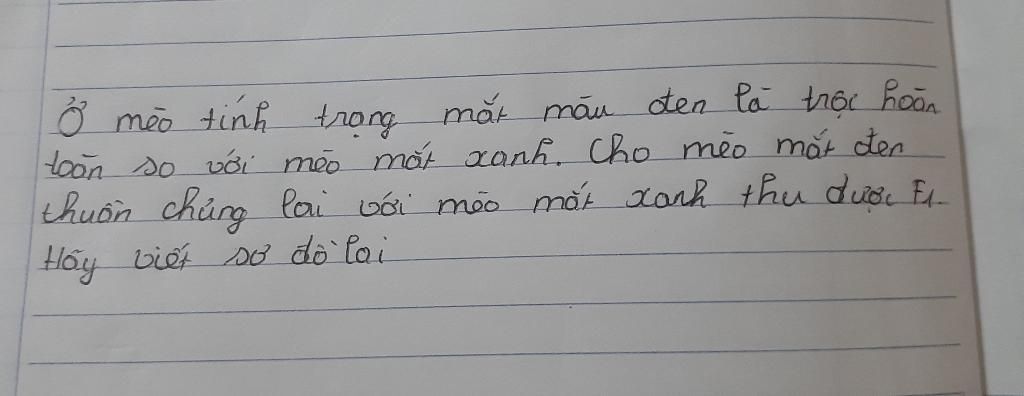 Ở mèo tính trạng mắt màu đen là trội hoàn
toàn so với mèo mắt xanh. Cho mèo mắt đen
thuần chủng lai với mèo mắt xanh thu được F1.
Hãy viết sơ đồ lai